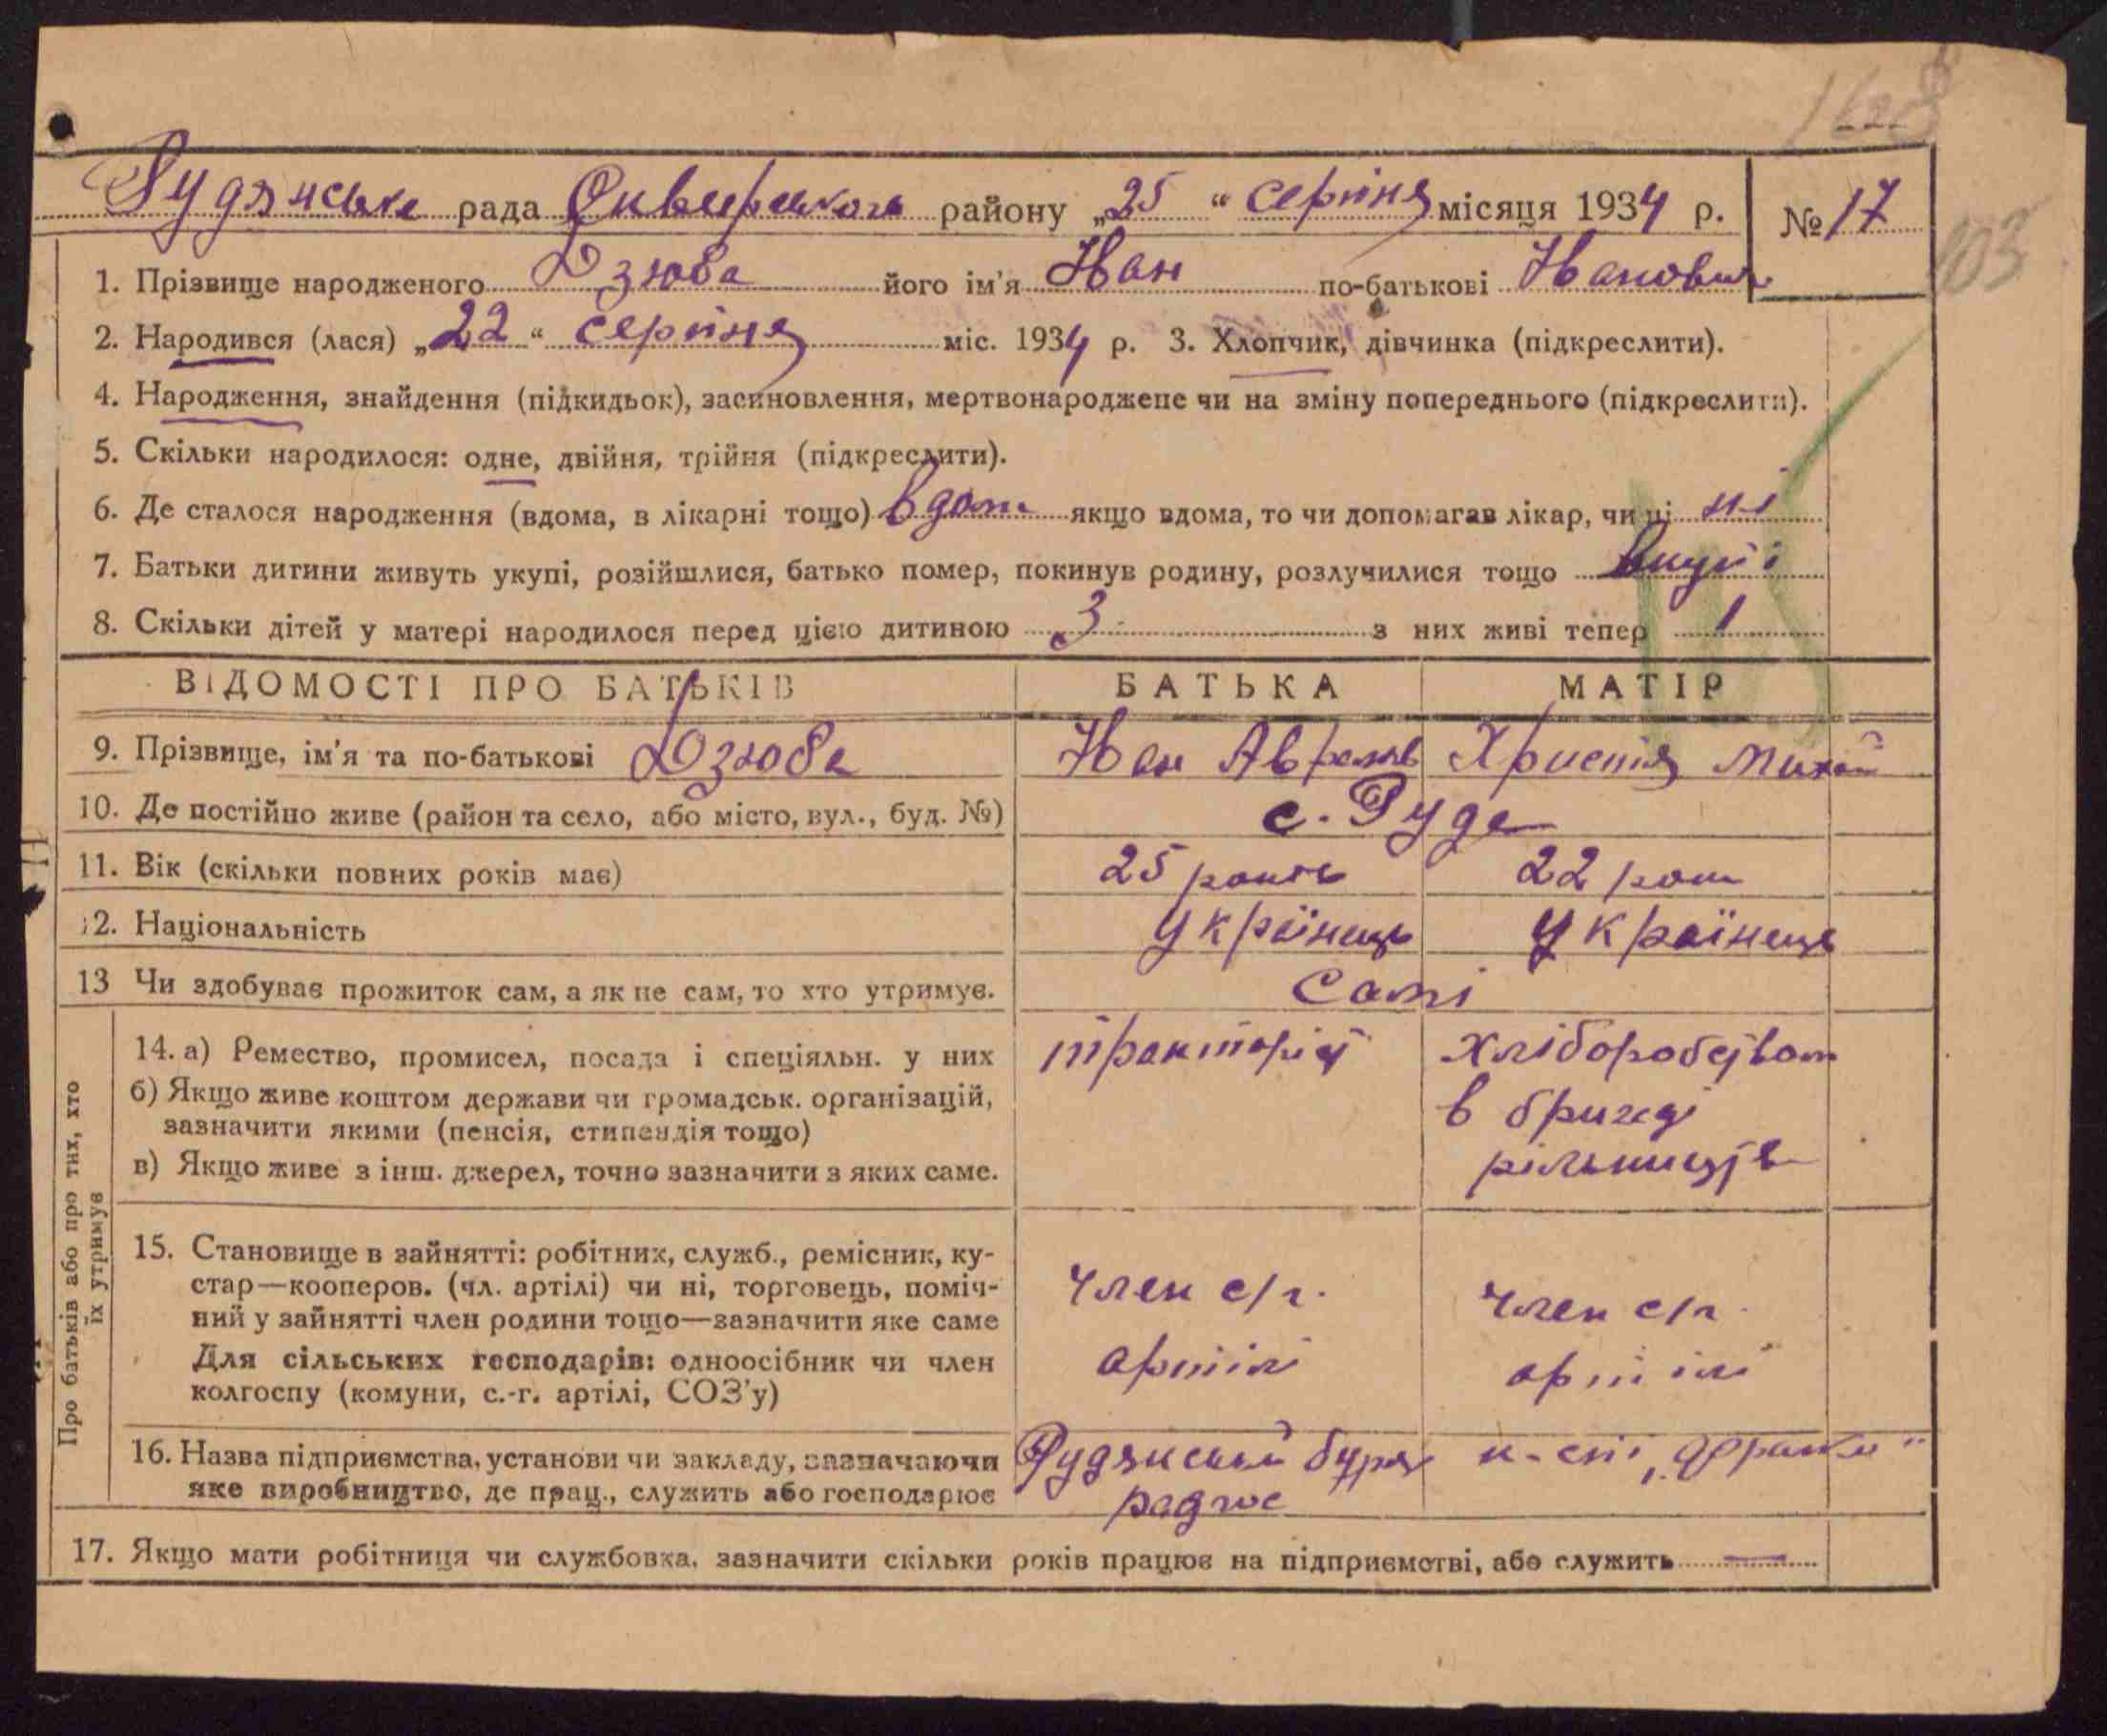 Рудянська рада Сквирського району „25“ серпня місяця 1934 р. № 17
103
1. Прізвище народженого Дзюба його ім'я Іван по-батькові Іванович
2. Народився (лася) „22“ серпня міс. 1934 р. 3. Хлопчик, дівчинка (підкреслити).
4. Народження, знайдення (підкидьок), засиновлення, мертвонароджене чи на зміну попереднього (підкреслити).
5. Скільки народилося: одне, двійня, трійня (підкреслити).
6. Де сталося народження (вдома, в лікарні тощо) вдома якщо вдома, то чи допомагав лікар, чи ні ні
7. Батьки дитини живуть укупі, розійшлися, батько помер, покинув родину, розлучилися тощо вкупі
8. Скільки дітей у матері народилося перед цією дитиною 3 з них живі тепер 1
ВІДОМОСТІ ПРО БАТЬКІВ БАТЬКА МАТІР
9. Прізвище, ім'я та по-батькові Дзюба Іван Аврамів Христя Михай
10. Де постійно живе (район та село, або місто, вул., буд. №) с. Руда
11. Вік (скільки повних років має) 25 років 22 роки
12. Національність українець українець
13 Чи здобуває прожиток сам, а як не сам, то хто утримує. Самі
Про батьків або про тих, хто їх утримує
14. а) Ремество, промисел, посада і спеціяльн. у них тракторіст хліборобством
б) Якщо живе коштом держави чи громадськ. організацій, в бригаді
зазначити якими (пенсія, стипендія тощо) рільництв
в) Якщо живе з інш. джерел, точно зазначити з яких саме.
15. Становище в зайнятті: робітник, служб., ремісник, ку-
стар—кооперов. (чл. артілі) чи ні, торговець, поміч- член с/г. член с/г.
ний у зайнятті член родини тощо—зазначити яке саме
Для сільських господарів: одноосібник чи член артілі артілі
колгоспу (комуни, с.-г. артілі, СОЗ'у)
16. Назва підприємства, установи чи закладу, зазначаючи Рудянський буряк к-сп „Франка“
яке виробництво, де прац., служить або господарює радгос
17. Якщо мати робітниця чи службовка, зазначити скільки років працює на підприємстві, або служить —